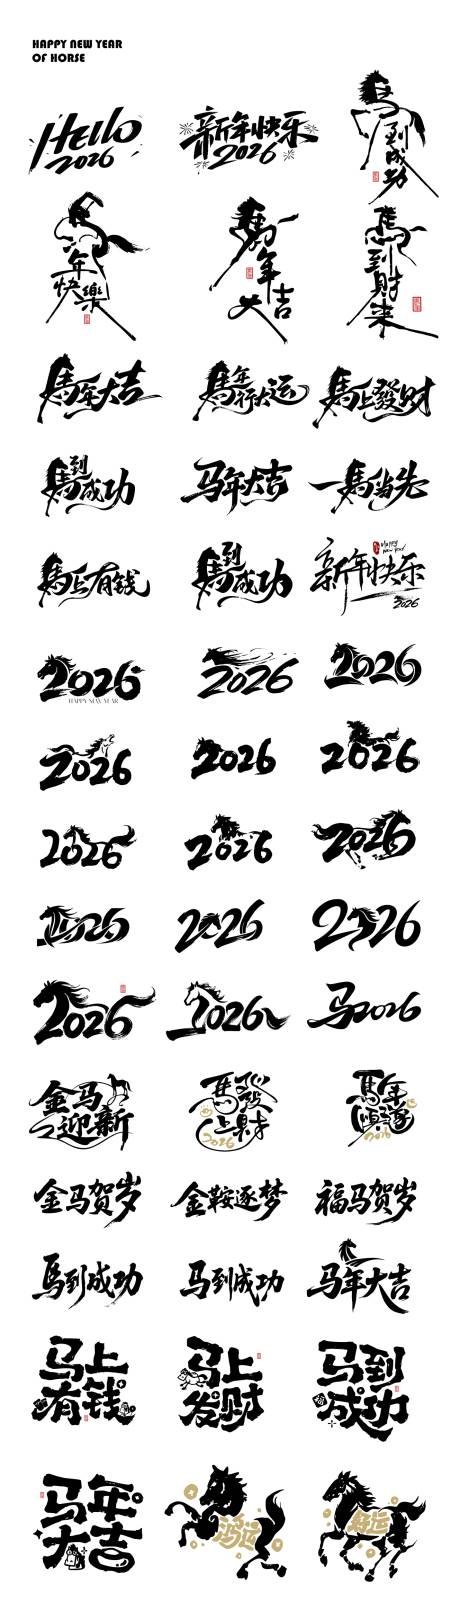 HAPPY NEW YEAR
OF HORSE
HELLO
2026
新年快乐
2026
馬到成功
馬年快樂
馬年大吉
馬到財来
馬年大吉
馬年行大运
馬上發财
馬到成功
马年大吉
一馬当先
馬上有钱
馬到成功
新年快乐
Happy
New Year
2026
2026
HAPPY NEW YEAR
2026
2026
2026
2026
2026
2026
2026
2026
2026
2026
2026
2026
2026
马2026
金马
迎新
馬發
上财
2026
馬年
2026
金马贺岁
金鞍逐梦
福马贺岁
馬到成功
马到成功
马年大吉
马上
有钱
马上
发财
马到
成功
马年
大吉
鸿运
好运